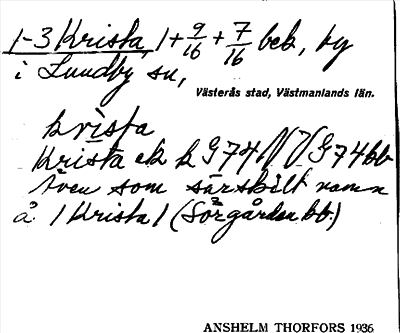 1-3 Krista, 1+ 9/16 + 7/16 bek, by
i Lundby sn,
Västerås stad, Västmanlands län.
krista
Krista ek k G 74 G 74 bb
Även som särskilt namn
å 1 Krista 1 (Sörgården bb.)
ANSHELM THORFORS 1936